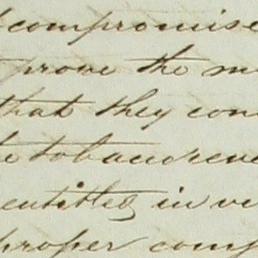 compromise
prove the m
that they con
to
entitled in vi
proper comp